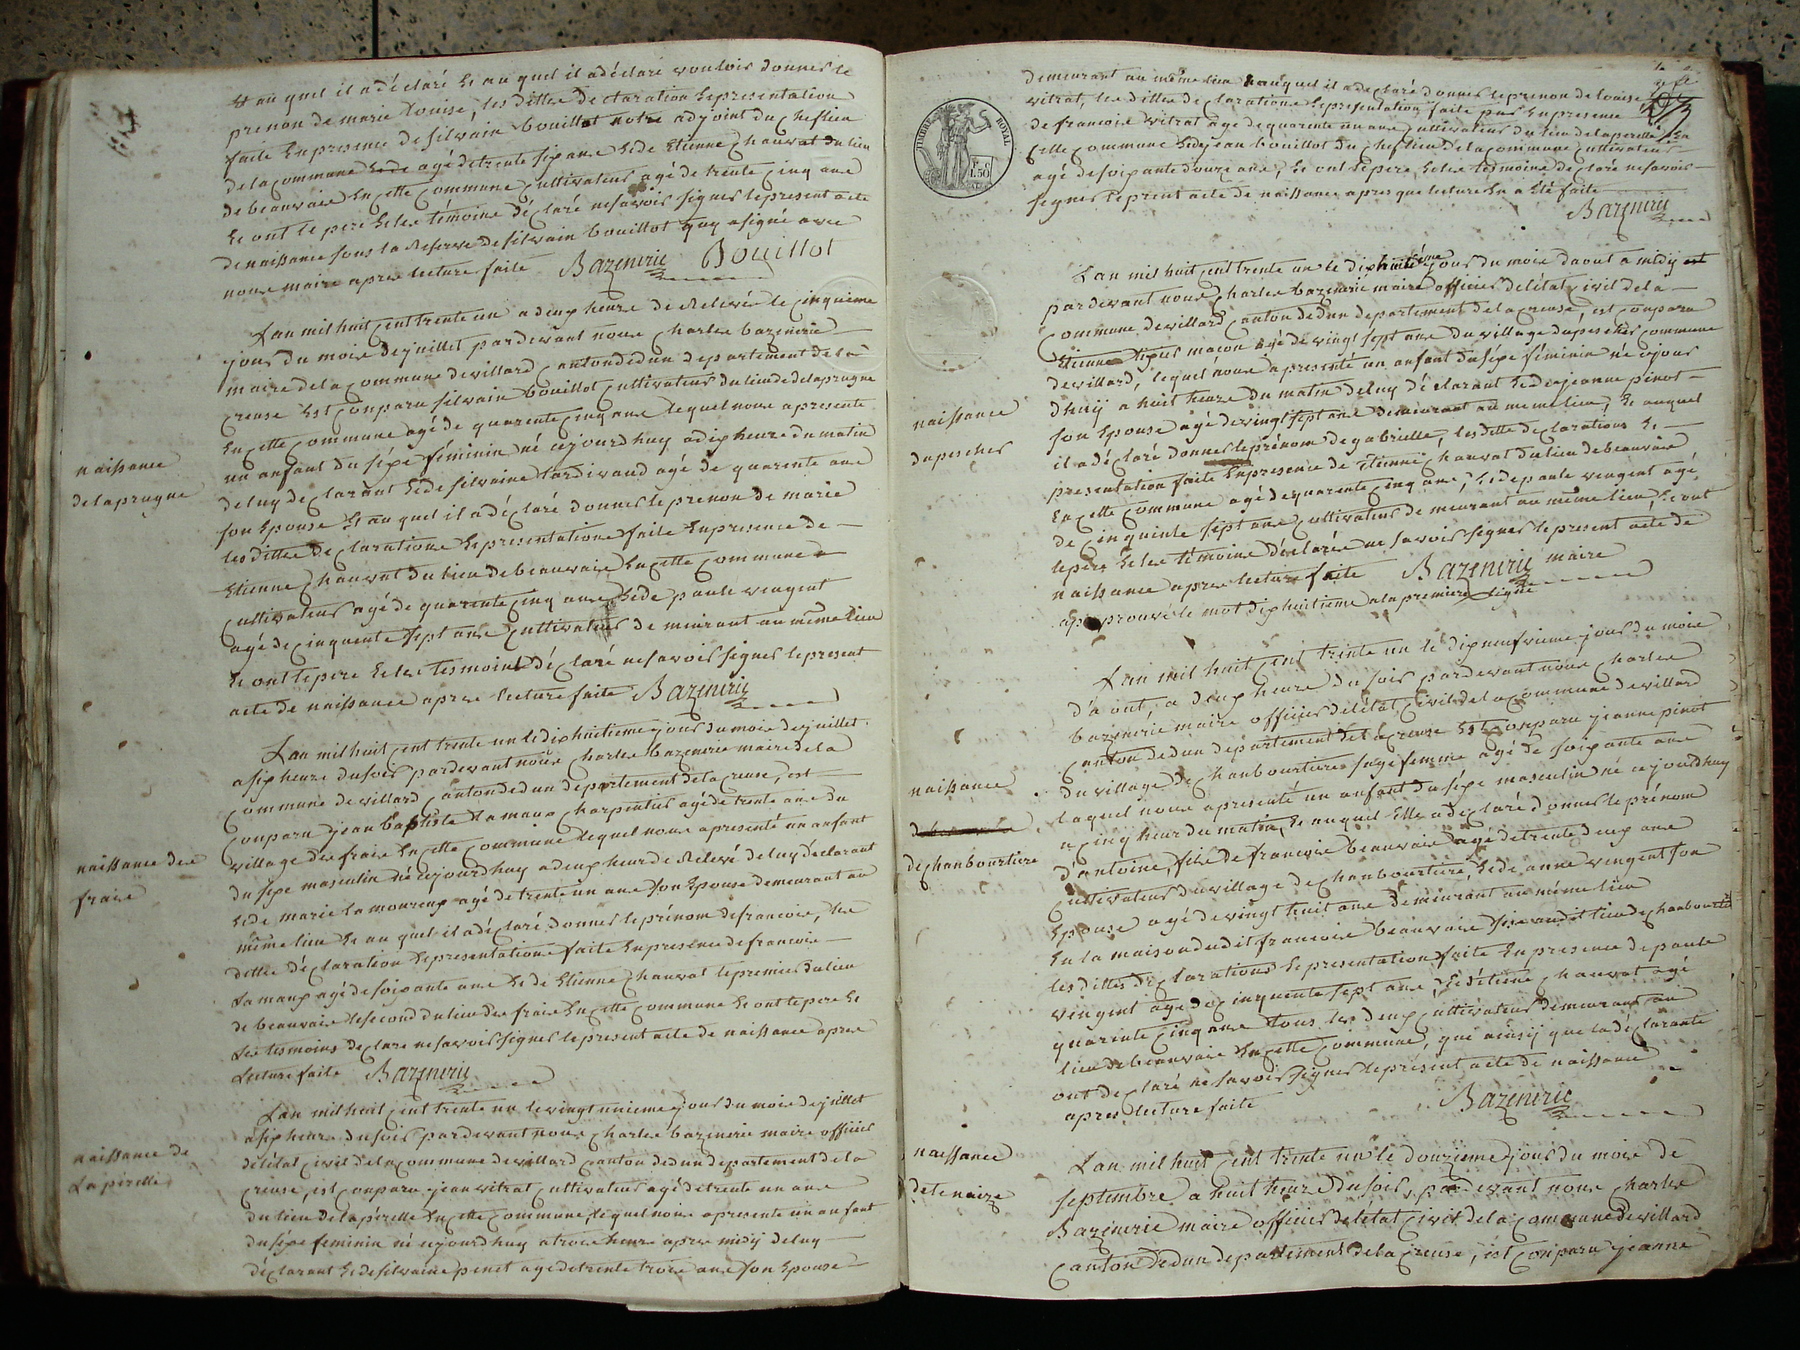 Et au quel il a déclaré Et au quel il a déclaré vouloir donner le
prenon de marie Louise, les dittes declaration Et presentation
faite En presence de silvain bouillot notre adjoint du cheflieu
de la commune agé de trente six ans Et de Etienne chauvat du lieu
de beauvais En cette commune cultivateur agé de trente cinq ans
Et ont le pere Et les témoins déclaré ne savoir signer le present acte
de naissance sous la Reserve de silvain bouillot quy a signé avec
nous maire apres lecture faite Bazenerie Bouillot
L'an mil huit cent trente un a deux heures de Relevée le cinquieme
jour du mois de juillet pardevant nous charles bazenerie
maire de la commune de villard canton de dun departement de la
creuse Est conparu silvain bouillot cultivateur du lieu de delaprugne
En cette commune agé de quarente cinq ans lequel nous a presenté
naissance
un anfant du séxe féminin né cejourdhuy a dix heures du matin
delaprugne
de luy declarant Et de silvaine tardivaud agé de quarente ans
son Epouse Et au quel il a déclaré donner le prenon de marie
les dittes declarations Et presentations faite En presence de
Etienne chauvat du lieu de beauvais En cette commune
cultivateur agé de quarente cinq ans Et de paule vingent
agé de cinquente sept ans cultivateur demeurant au même lieu
Et ont le pere Et les tesmoins déclaré ne savoir signer le present
acte de naissance apres lecture faite Bazenerie
L'an mil huit cent trente un le dixhuitieme jour du mois de juillet
a six heures du soir pardevant nous charles bazenerie maire de la
commune de villard canton de dun departement de la creuse, est
conparu jean baptiste Lamaux charpentier agé de trente ans du
naissance des
village des frais En cette commune lequel nous a presenté un anfant
fraise
du sexe masculin né cejourdhuy a deux heures de Relevé de luy déclarant
Et de marie lamoureux agé de trente un ans son Epouse demeurant au
même lieu Et au quel il a déclaré donner le prénom de francois, les
dittes déclaration Et presentations faite En presence de francois
Lamaux agé de soixante ans Et de Etienne chauvat le premier du lieu
de beauvais le second du lieu des frais En cette commune Et ont le pere Et
Les tesmoins declaré ne savoir signer le present acte de naissance apres
Lecture faite Bazenerie
L'an mil huit cent trente un le vingt unieme jour du mois de juillet
a six heures du soir pardevant nous charles bazenerie maire officier
naissance de
de létat civil de la commune de villard canton de dun departement de la
Lapérelle
creuse, est conparu jean vitrat cultivateur agé de trente un ans
du lieu de lapérelle En cette commune, lequel nous a presenté un anfant
du séxe feminin né cejourdhuy a trois heures apres midy de luy
declarant Et de silvaine pinet agé de trente trois ans son Epouse
demeurant au même lieu Et auquel il a declaré donner le prenon de louise
vitrat, les dittes declarations Et presentation faite par En presence
de francois vitrat agé de quarente un ans cultivateur du lieu de laperelle En
cette commune Et de jean bouillot du cheflieu de la commune cultivateur
agé de soixante douze ans, Et ont le pere Et les tesmoins declaré ne savoir
signer le present acte de naissance apres que lecture En a été faite
Bazenerie
TIMBRE ROYAL
1.50
L'an mil huit cent trente un le dixhuitième jour du mois d'aout a midy
pardevant nous charles bazenerie maire officier de létat civil de la
commune de villard canton de dun departement de la creuse, est conparu
Etienne tixier maçon agé de vingt sept ans du village dupescher commune
de villard, lequel nous a presenté un anfant du séxe féminin né cejour
naissance
dhuy a huit heures du matin de luy déclarant Et de jeanne pinot
dupescher
son Epouse agé de vingt sept ans demeurant au meme lieu, Et auquel
il a déclaré donner le prénom de gabrielle, les ditte declarations Et
presentation faite En presence de Etienne chauvat du lieu de beauvais
En cette commune agé de quarente cinq ans, Et de paule vingent agé
de cinquente sept ans cultivateur demeurant au même lieu, Et ont
le pere Et les témoins déclarés ne savoir signer le present acte de
naissance apres lecture faite Bazenerie maire
approuvé le mot dixhuitieme a la premiere ligne
L'an mil huit cent trente un le dixneufvieme jour du mois
d'aout, a deux heures du soir pardevant nous charles
bazenerie maire officier de létat civil de la commune de villard
canton de dun departement de la creuse Est conparu jeanne pinot
naissance
du village de chanbourtiere sage femme agé de soixante ans
laquel nous a presenté un anfant du séxe masculin né cejourdhuy
a cinq heur du matin, Et auquel Elle a declaré donner le prénom
dechanbourtiere
d'antoine, fils de francois beauvais agé de trente deux ans
cultivateur du village de chanbourtiere, Et de anne vingent son
Epouse agé de vingt huit ans demeurant au meme lieu
En la maison dudit francois beauvais sise audit lieu de chanbourtiere
les dittes declarations Et presentation faite En presence de paule
vingent agé de cinquente sept ans, Et d'étiene chauvat agé
quarente cinq ans tous les deux cultivateur demeurant au
lieu de beauvais En cette commune, qui ainsy que la déclarante
ont declaré ne savoir signer le présent acte de naissance
apres lecture faite Bazenerie
naissance
L'an mil huit cent trente un le douzieme jour du mois de
detenaize
septembre a huit heures du soir, pardevant nous charles
Bazenerie maire officier de létat civil de la commune de villard
canton de dun departement de la creuse, est conparu jeanne